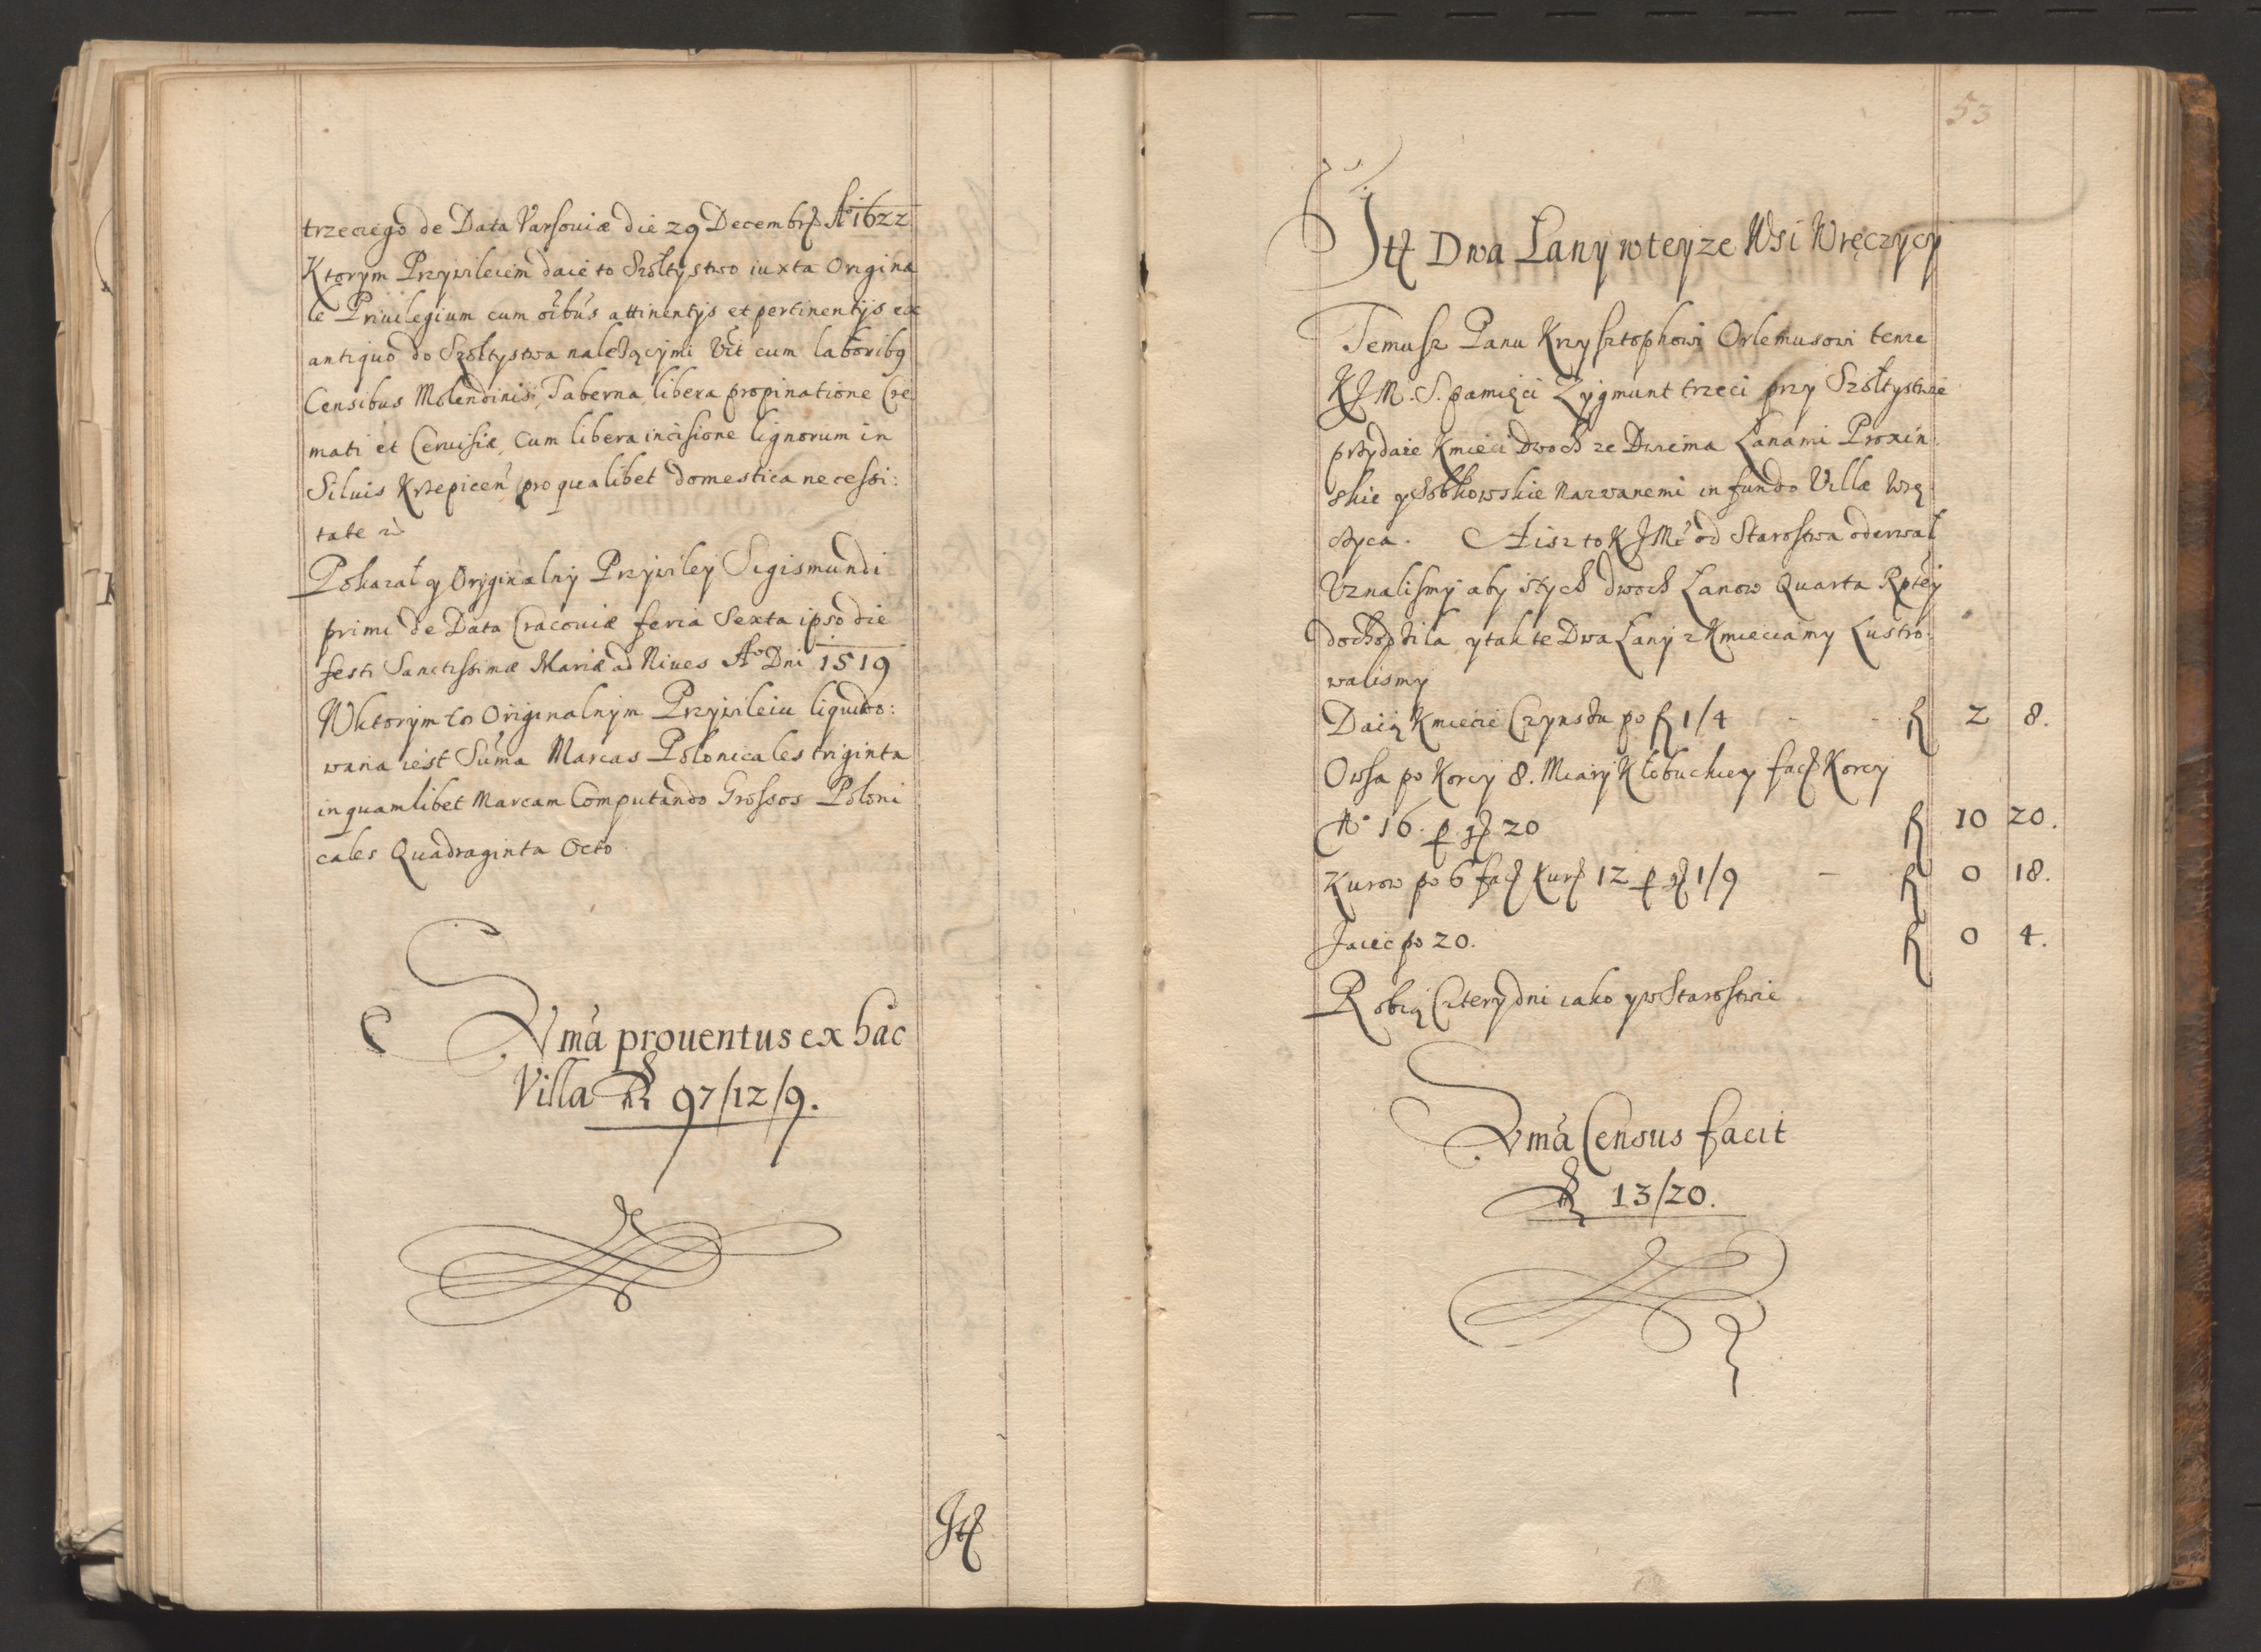 trzeciego de Data Varsouiæ die 29 Decembr Aº 1622
Ktorym Przywileiem daie to Szołtystwo iuxta Origina
le Priuilegium cum oibus attinentijs et pertinentijs ex
antiquo do Szołtystwa należącymi Vit cum laboribq
Censibus Molendinis, Taberna, libera propinatione Cre
mati et Ceruisiæ, Cum libera incisione lignorum in
Siluis Krzepicen pro qualibet domestica necessi:
tate
Pokazał y Oryginalny Przywiley Sigismundi
primi de Data Cracouiæ feria Sexta ipso die
festi Sanctissimæ Mariæ ad Niues Aº Dni 1519
Wktorym to Originalnym Przywileiu liquido:
wana iest Suma Marcas Polonicales triginta
in quamlibet Marcam Computando Grossos Poloni
cales Quadraginta Octo.
Suma prouentus ex hac
Villa 97/12/9.
Jt
53
Jt Dwa Łany wteyze Wsi Wręczycy
Temusz Panu Krzysztophowi Orlemusowi tenze
KJM. S. pamięci Zygmunt trzeci przy Szołtystwie
przydaie Kmieci Dwoch ze Dwiema Łanami Proxin
skie y Sobkowskie Nazwanemi in fundo Villæ Wrę
czyca. A isz to KJMć od Starostwa oderwał
Vznalismy aby stych dwoch Łanow Quarta Rptey
dochodziła, y tak te Dwa Łany z Kmieciamy Lustro
walismy
Daią Kmiecie Czynszu po f 1/4 - - f 2 8.
Owsa po Korcy 8. Miary Kłobuckiey fac Korcy
Nº 16. p gr 20 f 10 20.
Kurow po 6 fac Kur 12 p gr 1/9 - f 0 18.
Jaiec po 20. f 0 4.
Robią Cztery dni iako y w Starostwie
Suma Census facit
13/20.